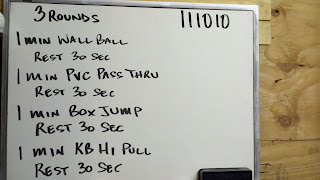 3 ROUNDS 111010
1 MIN WALL BALL
REST 30 SEC
1 MIN PVC PASS THRU
REST 30 SEC
1 MIN BOX JUMP
REST 30 SEC
1 MIN KB HI PULL
REST 30 SEC